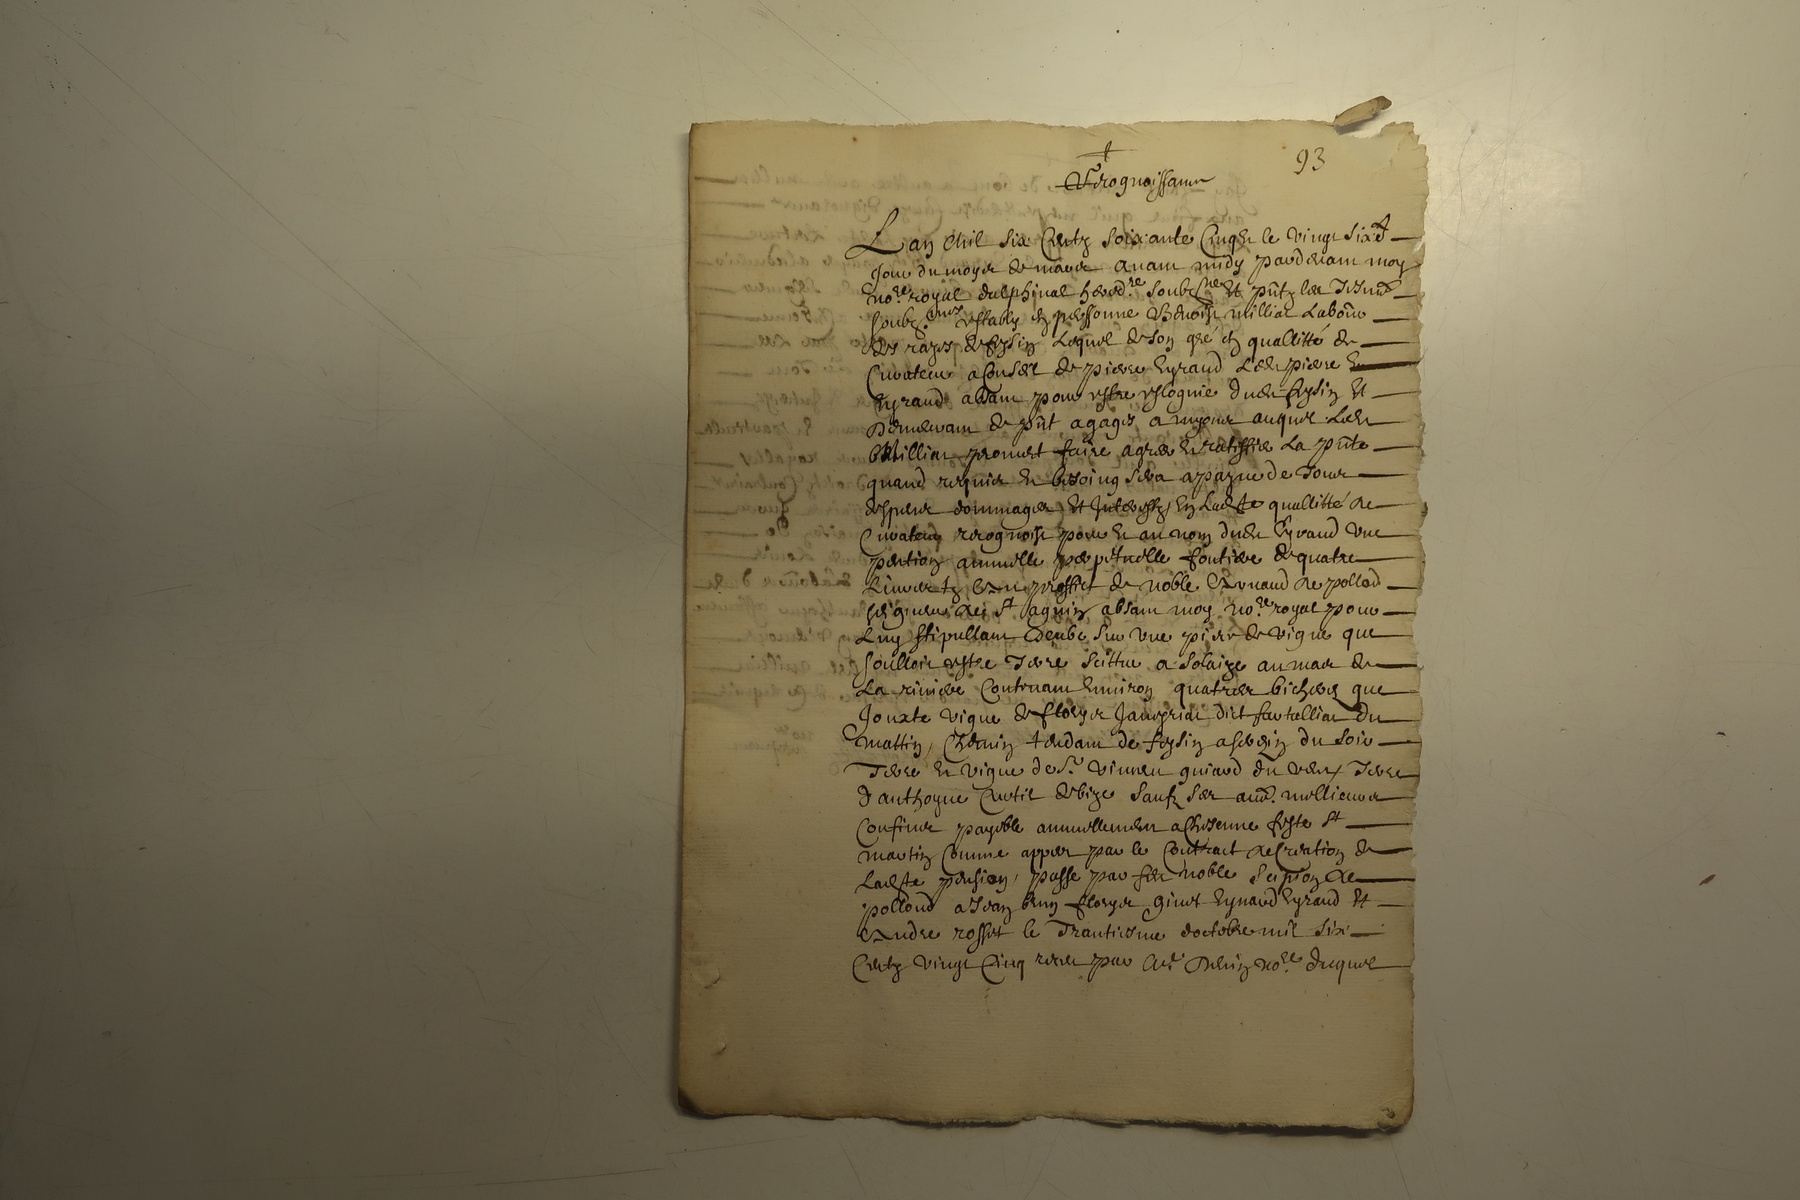 93
Recognoissance
Lan Mil six Centz soixante Cinq et le vingt six.e
Jour du moys de mars avant midy pardevant moy
no.re royal dalphinal hered.re soubz.né et pñtz les tesm.s
soubz.nés estably en personne Benoist milliat Labour.
des razes de feysin Lequel de son gré en quallitté de
Curateur a Conseil de pierre Eyraud Led. pierre
Eyraud absant pour estre esloigné dud. feysin et
Demeurant de pñt a gages a auquel Led.
Milliat promet faire agreer et ratiffier La pñte
quand requis et besoing sera a payne de tous
despens dommages et Interestz en Ladste quallitté de
Curateur recognoist pour et au nom dud. Eyraud une
pention annuelle perpetuelle fontiere de quatre
Livres tz au proffict de noble Arnaud de pollod
seigneur de St agnin absant moy no.re royal pour
Luy stipullant deube sur une piece de vigne que
soulloit estre terre scittue a Solaize au mas de
La riviere Contenant Environ quatres bicherés que
Jouxte vigne de fleurys Janeyriat dict farcelliat du
mattin, Chemin tendant de feysin a serezin du soir
Terre et vigne de S.r Vincen guiard du vent, terre
d'anthoyne Curtil de bize sauf ses aut. mellieurs
Confins payable annuellement a Chesenne feste St
martin Comme appert par le Contract de Creation de
Ladste pension, passe par feu noble Scipion de
pollond a Jean brun fleurys ginet Eynard Eyraud et
Andre rosset le Trantiesme doctobre mil six
Centz vingt Cinq receu par Me no.re duquel